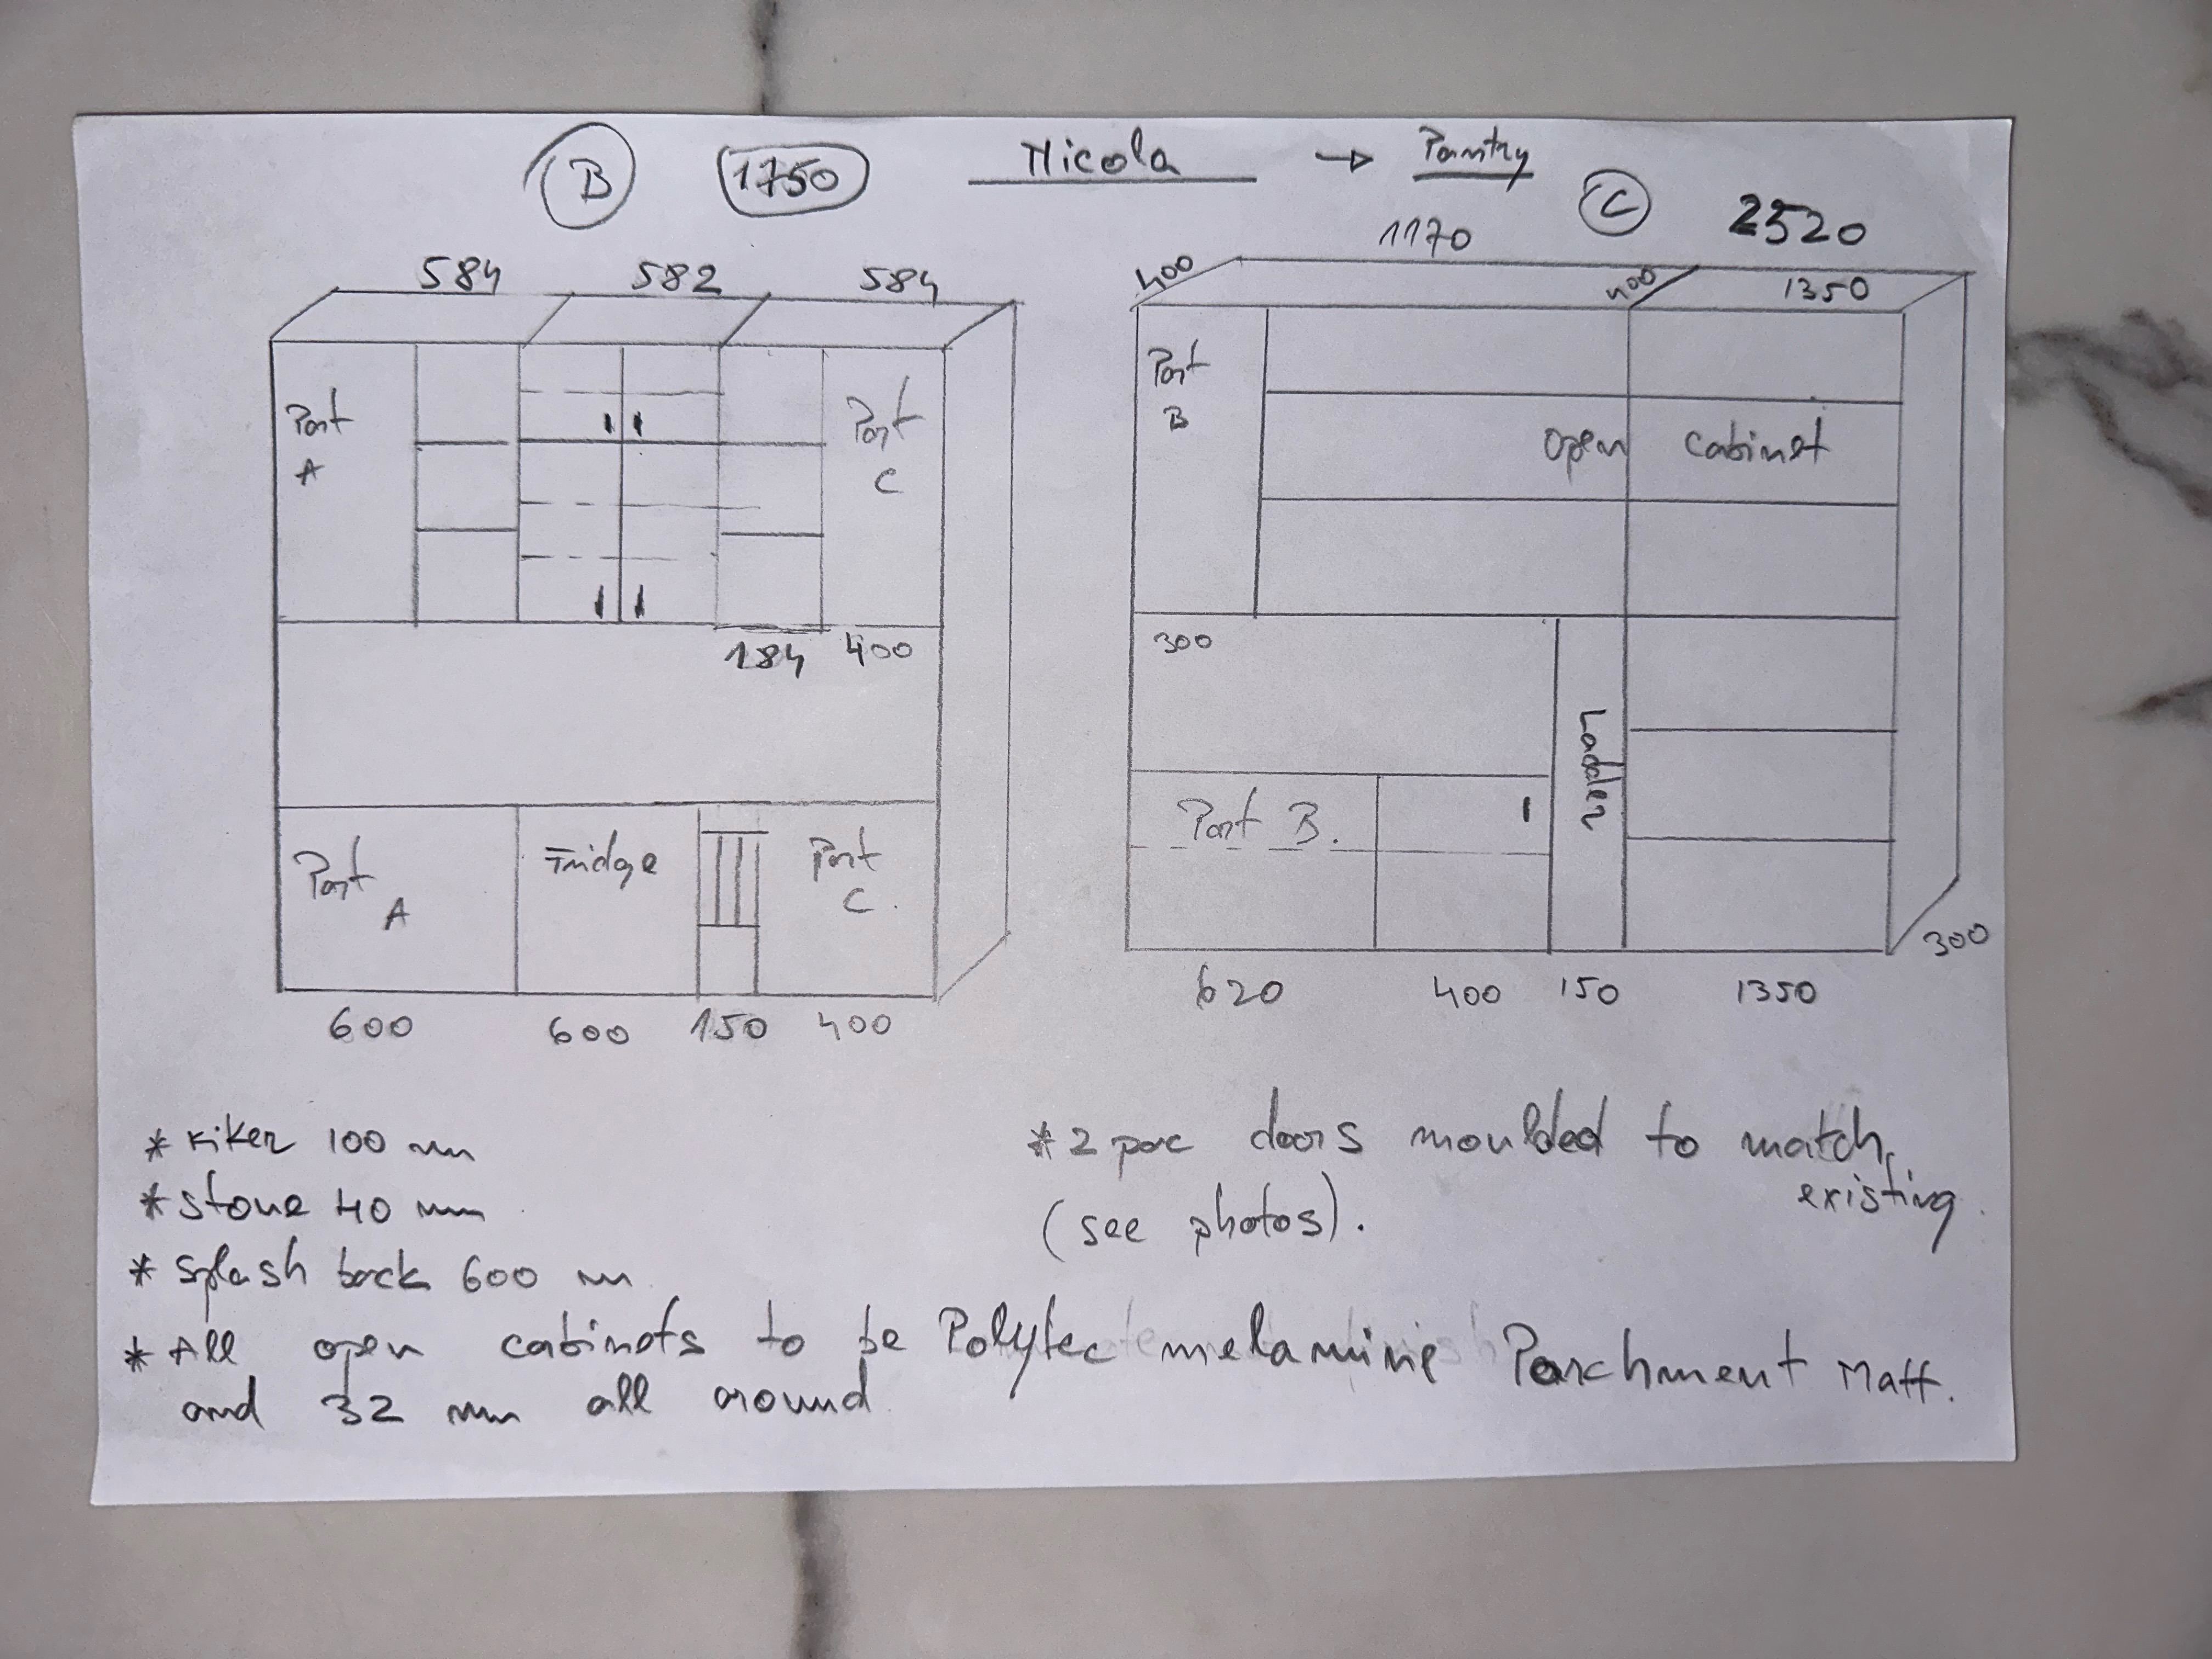 B 1750 Nicola → Pantry
C 2520
584 582 584
400 1170 400 1350
Part A
Part C
184 400
Part A
Fridge
Part C.
600 600 150 400
Part B
open cabinet
300
Ladder
Part B.
300
620 400 150 1350
* Kiker 100 mm
* stone 40 mm
* splash back 600 m
* All open cabinets to be Polytec melamine Parchment Matt.
and 32 mm all around
* 2 pac doors moulded to match existing.
(see photos).